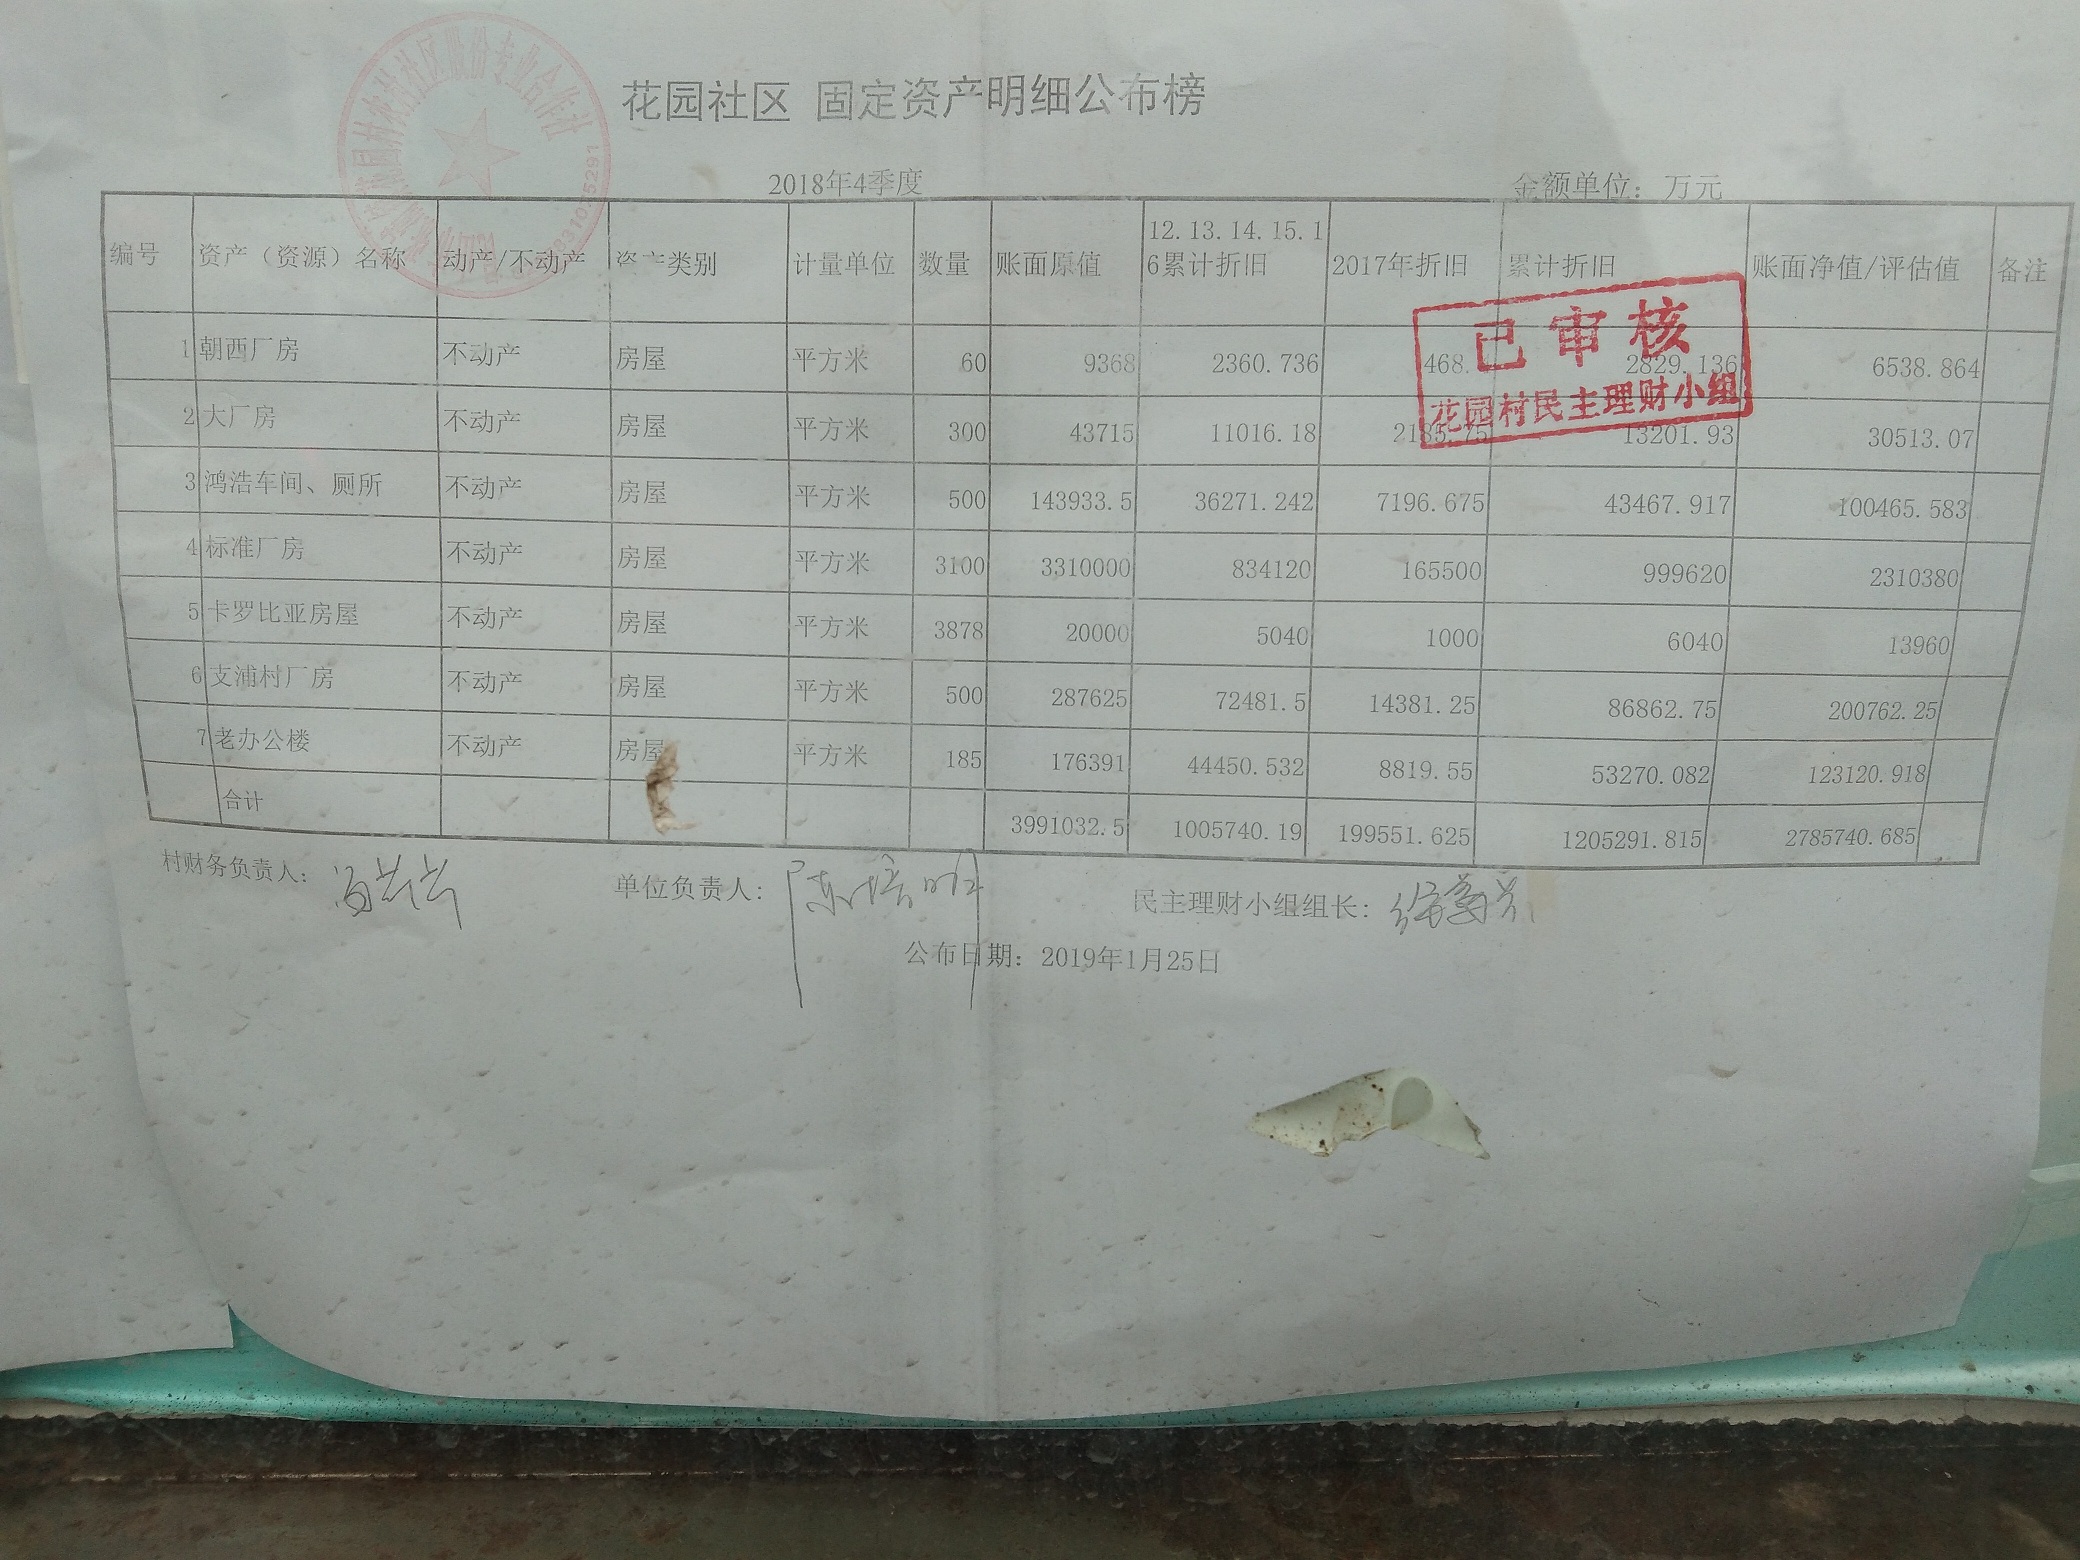 花园社区 固定资产明细公布榜
2018年4季度 金额单位：万元
编号 资产（资源）名称 动产/不动产 资产类别 计量单位 数量 账面原值 12.13.14.15.16累计折旧 2017年折旧 累计折旧 账面净值/评估值 备注
1 朝西厂房 不动产 房屋 平方米 60 9368 2360.736 468. 2829.136 6538.864
2 大厂房 不动产 房屋 平方米 300 43715 11016.18 2185.75 13201.93 30513.07
3 鸿浩车间、厕所 不动产 房屋 平方米 500 143933.5 36271.242 7196.675 43467.917 100465.583
4 标准厂房 不动产 房屋 平方米 3100 3310000 834120 165500 999620 2310380
5 卡罗比亚房屋 不动产 房屋 平方米 3878 20000 5040 1000 6040 13960
6 支浦村厂房 不动产 房屋 平方米 500 287625 72481.5 14381.25 86862.75 200762.25
7 老办公楼 不动产 房屋 平方米 185 176391 44450.532 8819.55 53270.082 123120.918
合计 3991032.5 1005740.19 199551.625 1205291.815 2785740.685
已审核
花园村民主理财小组
村财务负责人： 单位负责人：陈培明 民主理财小组组长：
公布日期：2019年1月25日